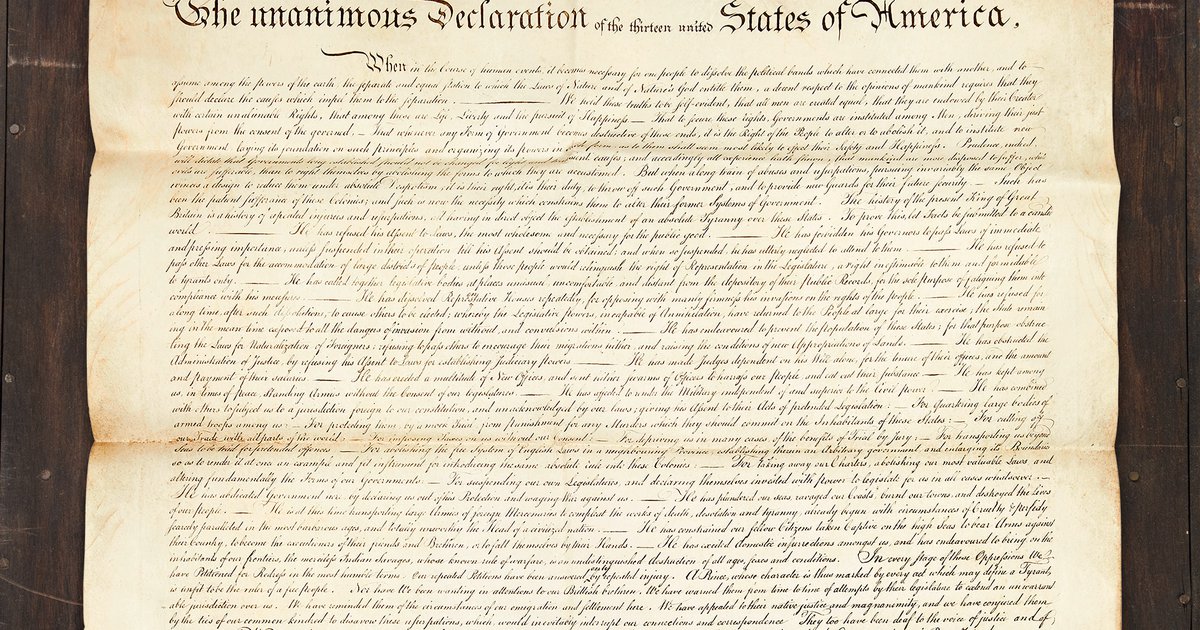 The unanimous Declaration of the thirteen united States of America,
When in the Course of human events, it becomes necessary for one people to dissolve the political bands which have connected them with another, and to
assume among the powers of the earth, the separate and equal station to which the Laws of Nature and of Nature's God entitle them, a decent respect to the opinions of mankind requires that they
should declare the causes which impel them to the separation. ——— We hold these truths to be self-evident, that all men are created equal, that they are endowed by their Creator
with certain unalienable Rights, that among these are Life, Liberty and the pursuit of Happiness — That to secure these rights, Governments are instituted among Men, deriving their just
powers from the consent of the governed, — That whenever any Form of Government becomes destructive of these ends, it is the Right of the People to alter or to abolish it, and to institute new
Government, laying its foundation on such principles and organizing its powers in such form, as to them shall seem most likely to effect their Safety and Happiness. Prudence, indeed,
will dictate that Governments long established should not be changed for light and transient causes; and accordingly all experience hath shewn, that mankind are more disposed to suffer, while
evils are sufferable, than to right themselves by abolishing the forms to which they are accustomed. But when a long train of abuses and usurpations, pursuing invariably the same Object
evinces a design to reduce them under absolute Despotism, it is their right, it is their duty, to throw off such Government, and to provide new Guards for their future security. — Such has
been the patient sufferance of these Colonies; and such is now the necessity which constrains them to alter their former Systems of Government. The history of the present King of Great
Britain is a history of repeated injuries and usurpations, all having in direct object the establishment of an absolute Tyranny over these States. To prove this, let Facts be submitted to a candid
world. ——— He has refused his Assent to Laws, the most wholesome and necessary for the public good. ——— He has forbidden his Governors to pass Laws of immediate
and pressing importance, unless suspended in their operation till his Assent should be obtained; and when so suspended, he has utterly neglected to attend to them. ——— He has refused to
pass other Laws for the accommodation of large districts of people, unless those people would relinquish the right of Representation in the Legislature, a right inestimable to them and formidable
to tyrants only. ——— He has called together legislative bodies at places unusual, uncomfortable, and distant from the depository of their Public Records, for the sole purpose of fatiguing them into
compliance with his measures. ——— He has dissolved Representative Houses repeatedly, for opposing with manly firmness his invasions on the rights of the people. ——— He has refused for
a long time, after such dissolutions, to cause others to be elected; whereby the Legislative powers, incapable of Annihilation, have returned to the People at large for their exercise; the State remain
ing in the mean time exposed to all the dangers of invasion from without, and convulsions within. ——— He has endeavoured to prevent the population of these States; for that purpose obstruc
ting the Laws for Naturalization of Foreigners; refusing to pass others to encourage their migrations hither, and raising the conditions of new Appropriations of Lands. ——— He has obstructed the
Administration of Justice, by refusing his Assent to Laws for establishing Judiciary powers ——— He has made Judges dependent on his Will alone, for the tenure of their offices, and the amount
and payment of their salaries. ——— He has erected a multitude of New Offices, and sent hither swarms of Officers to harrass our People, and eat out their substance. ——— He has kept among
us, in times of peace, Standing Armies without the Consent of our legislatures. ——— He has affected to render the Military independent of and superior to the Civil power. ——— He has combined
with others to subject us to a jurisdiction foreign to our constitution, and unacknowledged by our laws; giving his Assent to their Acts of pretended Legislation: — For Quartering large bodies of
armed troops among us: — For protecting them, by a mock Trial, from punishment for any Murders which they should commit on the Inhabitants of these States: — For cutting off
our Trade with all parts of the world: — For imposing Taxes on us without our Consent: — For depriving us in many cases, of the benefits of Trial by Jury: — For transporting us beyond
Seas to be tried for pretended offences — For abolishing the free System of English Laws in a neighbouring Province, establishing therein an Arbitrary government, and enlarging its Boundaries
so as to render it at once an example and fit instrument for introducing the same absolute rule into these Colonies: — For taking away our Charters, abolishing our most valuable Laws, and
altering fundamentally the Forms of our Governments: — For suspending our own Legislatures, and declaring themselves invested with power to legislate for us in all cases whatsoever. —
He has abdicated Government here, by declaring us out of his Protection and waging War against us. — He has plundered our seas, ravaged our Coasts, burnt our towns, and destroyed the Lives
of our people. — He is at this time transporting large Armies of foreign Mercenaries to compleat the works of death, desolation and tyranny, already begun with circumstances of Cruelty & perfidy
scarcely paralleled in the most barbarous ages, and totally unworthy the Head of a civilized nation. — He has constrained our fellow Citizens taken Captive on the high Seas to bear Arms against
their Country, to become the executioners of their friends and Brethren, or to fall themselves by their Hands. — He has excited domestic insurrections amongst us, and has endeavoured to bring on the
inhabitants of our frontiers, the merciless Indian Savages, whose known rule of warfare, is an undistinguished destruction of all ages, sexes and conditions. In every stage of these Oppressions We
have Petitioned for Redress in the most humble terms: Our repeated Petitions have been answered only by repeated injury. A Prince, whose character is thus marked by every act which may define a Tyrant,
is unfit to be the ruler of a free people. Nor have We been wanting in attentions to our Brittish brethren. We have warned them from time to time of attempts by their legislature to extend an unwarrant
able jurisdiction over us. We have reminded them of the circumstances of our emigration and settlement here. We have appealed to their native justice and magnanimity, and we have conjured them
by the ties of our common kindred to disavow these usurpations, which, would inevitably interrupt our connections and correspondence. They too have been deaf to the voice of justice and of